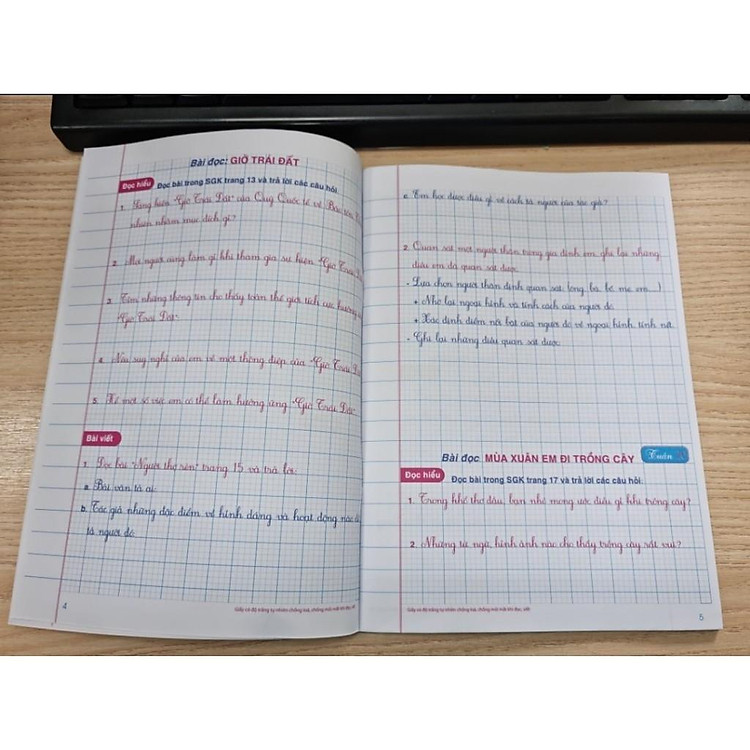 Bài đọc: GIỜ TRÁI ĐẤT
Đọc hiểu Đọc bài trong SGK trang 13 và trả lời các câu hỏi.
1. Sáng kiến "Giờ Trái Đất" của Quỹ Quốc tế về Bảo tồn
nhằm mục đích gì?
2. Mọi người cùng làm gì khi tham gia sự kiện "Giờ Trái Đất
3. Tìm những thông tin cho thấy toàn thế giới tích cực hưởng
"Giờ Trái Đất".
4. Nêu suy nghĩ của em về một thông điệp của "Giờ Trái Đất
5. Kể một số việc em có thể làm hưởng ứng "Giờ Trái Đất".
Bài viết
1. Đọc bài "Người thợ rèn" trang 15 và trả lời:
a. Bài văn tả ai
b. Tác giả những đặc điểm về hình dáng và hoạt động nào
tả người đó
4
Giấy có độ trắng tự nhiên chống loá, chống mỏi mắt khi đọc, viết
c. Em học được điều gì về cách tả người của tác giả?
2. Quan sát một người thân trong gia đình em, ghi lại những
điều em đã quan sát được.
- Lựa chọn người thân định quan sát (ông, bà, bố, mẹ, em...)
+ Nhớ lại ngoại hình và tính cách của người đó.
+ Xác định điểm nổi bật của người đó về ngoại hình, tính nết.
- Ghi lại những điều quan sát được.
Bài đọc MÙA XUÂN EM ĐI TRỒNG CÂY Tuần
Đọc hiểu Đọc bài trong SGK trang 17 và trả lời các câu hỏi:
1. Trong khổ thơ đầu, bạn nhỏ mong ước điều gì khi trồng cây?
2. Những từ ngữ, hình ảnh nào cho thấy trồng cây rất vui?
Giấy có độ trắng tự nhiên chống loá, chống mỏi mắt khi đọc, viết
5